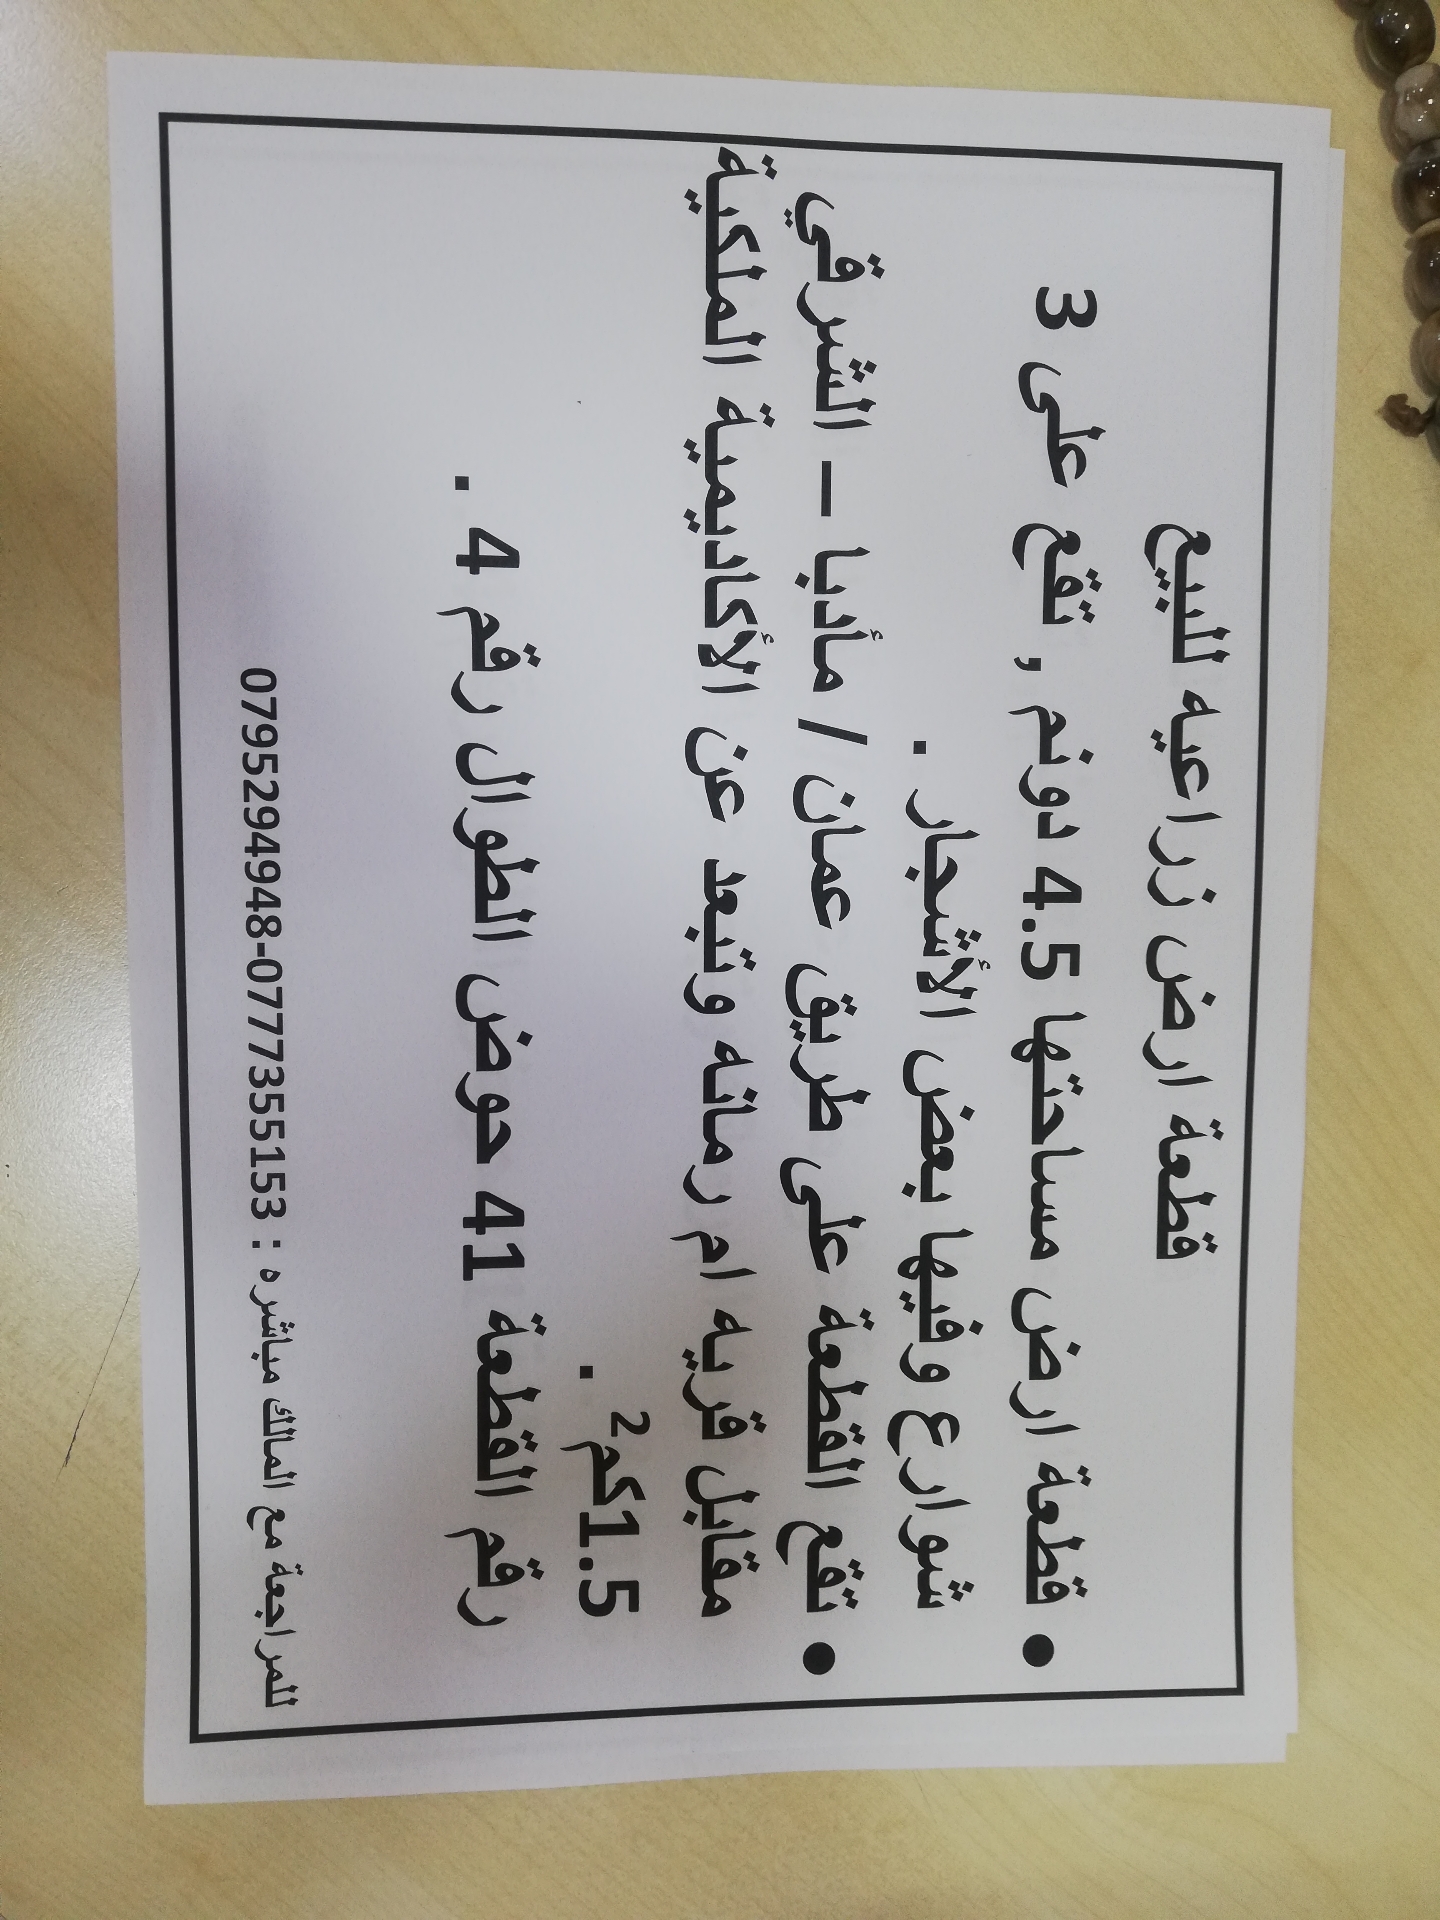 قطعة ارض زراعيه للبيع
● قطعة ارض مساحتها 4.5 دونم , تقع على 3
شوارع وفيها بعض الأشجار .
● تقع القطعة على طريق عمان / مأدبا – الشرقي
مقابل قريه ام رمانه وتبعد عن الأكاديمية الملكية
1.5كم² .
رقم القطعة 41 حوض الطوال رقم 4 .
للمراجعة مع المالك مباشره : 0795294948-0777355153